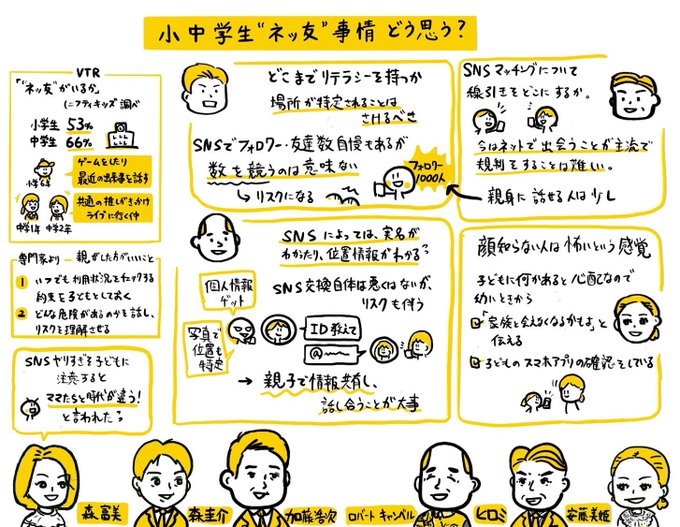 小中学生“ネッ友”事情 どう思う？
VTR
「“ネッ友”がいるか」
(ニフティキッズ調べ
小学生 53%
中学生 66%
小学6年
ゲームをしたり
最近の出来事を話す
中学1年 中学2年
共通の推しがきっかけ
ライブに行く仲
専門家より 親がした方がいいこと
1 いつでも利用状況をチェックする
約束を子どもとしておく
2 どんな危険があるのかを話し、
リスクを理解させる
SNSヤリすぎな子どもに
注意すると
ママたちと時代が違う！
と言われた
どこまでリテラシーを持つか
場所が特定されることは
さけるべき
SNSでフォロワー・友達数自慢もあるが
数を競うのは意味ない
↳ リスクになる
フォロワー
1000人
SNSマッチングについて
線引きをどこにするか。
今はネットで出会うことが主流で
規制をすることは難しい。
親身に話せる人は少し
SNSによっては、実名が
わかったり、位置情報がわかる
SNS交換自体は悪くはないが、
リスクも伴う
個人情報
ゲット
写真で
位置も
特定
ID教えて
@
→ 親子で情報共有し、
話し合うことが大事
顔知らない人は怖いという感覚
子どもに何かあると心配なので
幼いときから
「家族と会えなくなるかもよ」と
伝える
子どものスマホアプリの確認をしている
森富美
森圭介
加藤浩次
ロバート キャンベル
ヒロミ
安藤美姫